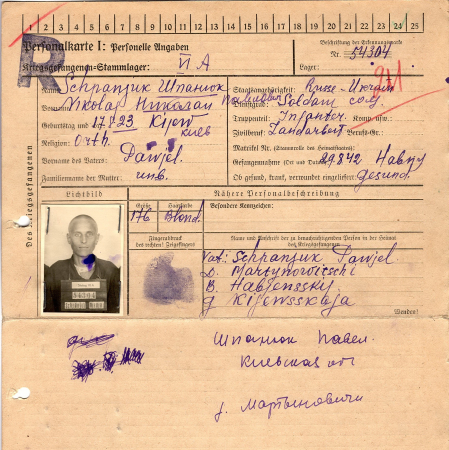 1 2 3 4 5 6 7 8 9 10 11 12 13 14 15 16 17 18 19 20 21 22 23 24 25
Personalkarte I: Personelle Angaben
Beschriftung der Erkennungsmarke
Nr. 54304
Kriegsgefangenen-Stammlager: II A
Lager:
Des Kriegsgefangenen
Name: Schpanjuk Шпанюк
Staatsangehörigkeit: Russe-Ukrain
Vorname: Nikolai Николай
Dienstgrad: Soldat сол
Geburtstag und 17.8.23 Kijew
киев
Truppenteil: Infanter. Komp. usw.:
Religion: Orth.
Zivilberuf: Landarbeit Berufs-Gr.:
Matrikel Nr. (Stammrolle des Heimatstaates):
Vorname des Vaters: Pawjel.
Gefangennahme (Ort und Datum):
Familienname der Mutter: unb.
Ob gesund, krank, verwundet eingeliefert: gesund.
Lichtbild
Nähere Personalbeschreibung
Größe
Haarfarbe
Besondere Kennzeichen:
176 Blond.
Fingerabdruck
des rechten! Zeigefingers
Name und Anschrift der zu benachrichtigenden Person in der Heimat
des Kriegsgefangenen
Vat: Schpanjuk Pawjel
D. Martynowitschi
54304
g Kijewsskaja
Wenden!
Шпанюк Павел.
Киевская об
д. Мартыновичи